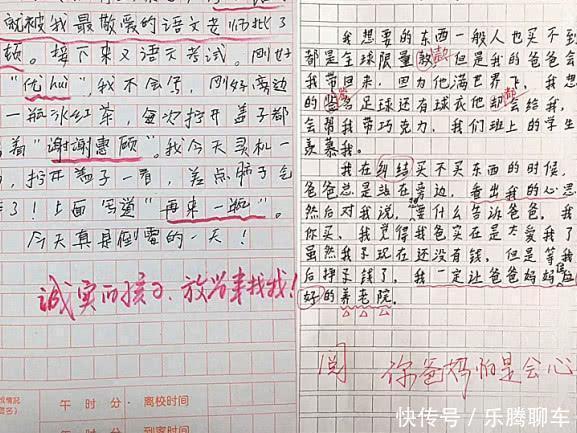 就被我最敬爱的语文老师批了
顿。接下来又语文考试。刚好
“优huì”,我不会写,刚好旁边
一瓶冰红茶,每次拧开盖子都
着“谢谢惠顾”。我今天灵机一
,拧开盖子一看,差点肺子气
了!上面写道“再来一瓶”。
今天真是倒霉的一天!
诚实的孩子、放学来找我!
我想要的东西一般人也买不到
都是全球限量款但是我的爸爸会
我带回来,因为他满世界飞,我想
的签名足球还有球衣他都会给我,
会帮我带巧克力,我们班上的学生
羡慕我。
我在纠结买不买东西的时候,
爸爸总是站在旁边,看出我的心思
然后对我说,想要什么告诉爸爸,我
你买,我觉得我爸实在是太爱我了
虽然我现在还没有钱,但是等我
后挣了钱了,我一定让爸爸妈妈
好的养老院。
阅 你爸妈怕是会心
校情况
签名)
午 时 分·离校时间
午 时 分·到家时间
快传号/乐腾聊车